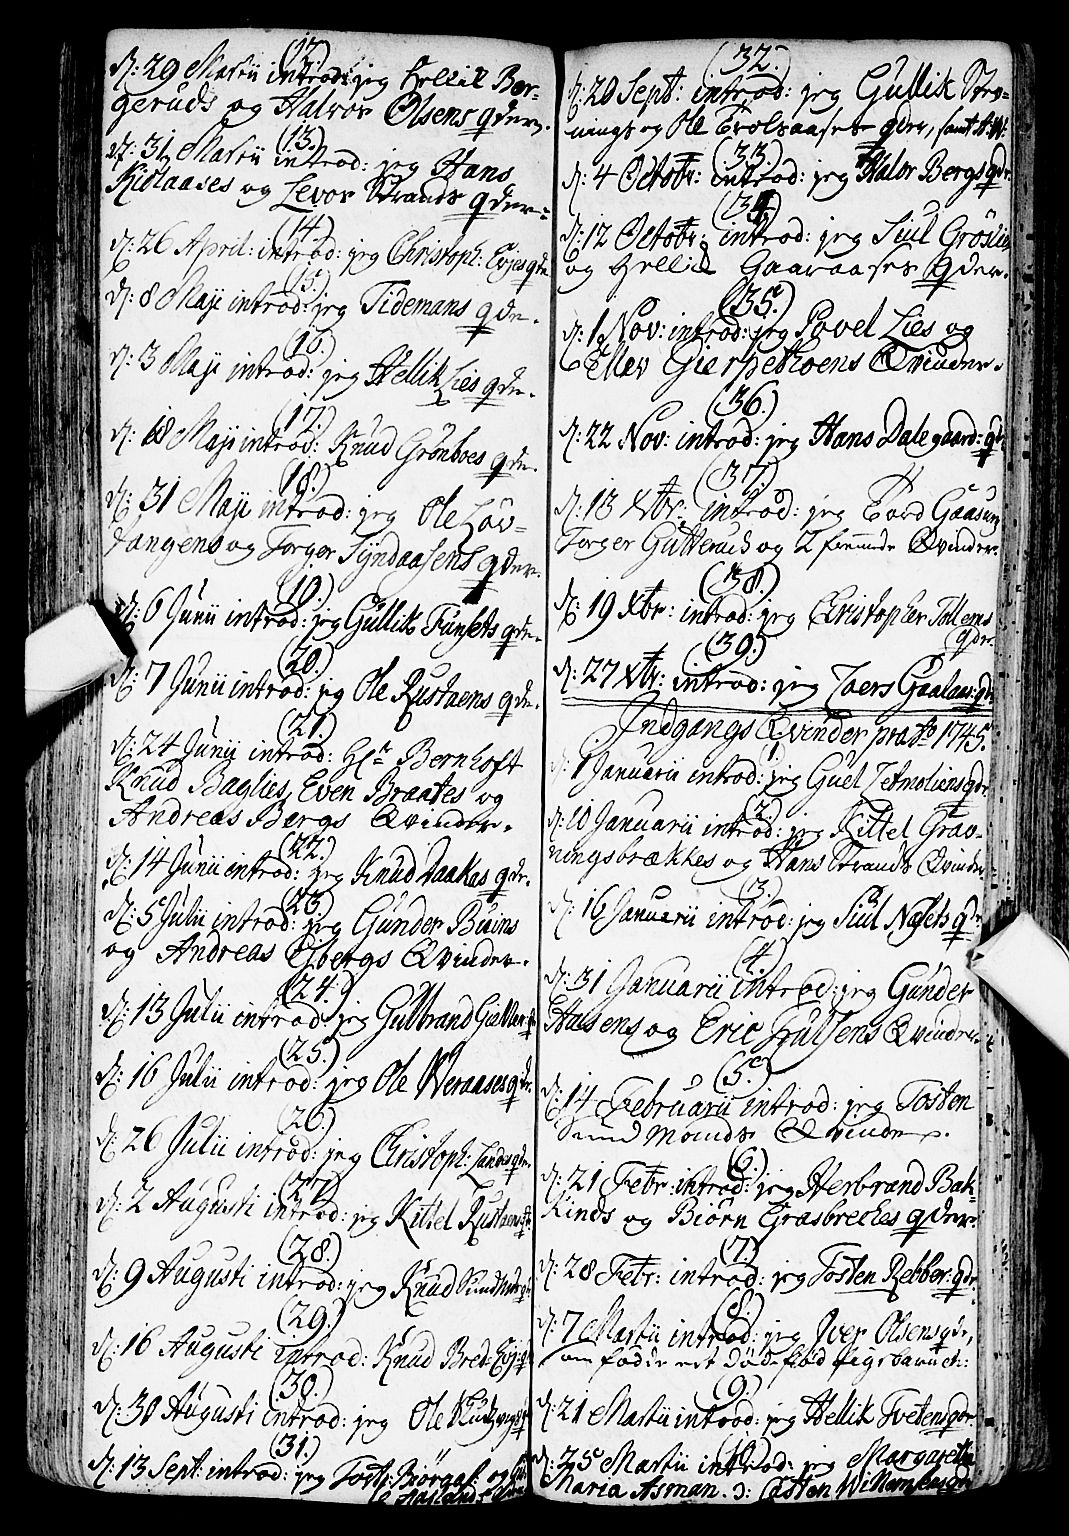 (12.)
d: 29 Martii introd: jeg Hellik Bør-
geruds og Halvor Olsens qder.
(13.)
d: 31 Martii introd: jeg Hans
Kiølaases og Levor Strands qder.
(14.)
d: 26 April: introd: jeg Christoph: Evjes qde
(15.)
d: 8 Maji introd: jeg Tidemans qde.
(16.)
d: 3 Maji introd: jeg Hellik Lies qde.
(17.)
d: 18 Maji introd: Knud Grønboes qde.
(18.)
d: 31 Maji introd: jeg Ole Løv-
tangens og Torger Tyndaasens qder.
(19.)
d: 6 Junii introd: jeg Gullik Funsets qde.
(20.)
d: 7 Junii introd: jeg Ole Rustaens qde.
(21.)
d: 24 Junii introd: Hr Bernhoft
Knud Baglies, Even Braates og
Andreas Bergs Qvinder.
(22.)
d: 14 Junii introd: jeg Knud Daakas qde.
(23.)
d: 5 Julii introd: jeg Gunder Buins
og Andreas Esbergs Qvinder.
(24.)
d: 13 Julii introd: jeg Gulbrand
(25.)
d: 16 Julii introd: jeg Ole Weraases qde.
(26.)
d: 26 Julii introd: jeg Christoph: Lands qde.
(27.)
d: 2 Augusti introd: jeg Kittel
(28.)
d: 9 Augusti introd: jeg Knud
(29.)
d: 16 Augusti introd: Knud Bred-
(30.)
d: 30 Augusti introd: jeg Ole
(31.)
d: 13 Sept: introd: jeg og
(32.)
d: 20 Sept: introd: jeg Gullik Stre-
nings og Ole Trolsaasens qder,
(33.)
d: 4 Octobr: introd: jeg Halvor Bergs qde
(34.)
d: 12 Octobr: introd: jeg Siul Grøslie
og Hellik Gaaraases qder.
(35.)
d: 1 Nov: introd: jeg Povel Lies og
Ellev Gierpetroens Qvinder.
(36.)
d: 22 Nov: introd: jeg Hans Dalegaard: qde
(37.)
d: 13 Xbr: introd: jeg Tord
Torger Gutteruds og 2 fremde Qvinder.
(38.)
d: 19 Xbr: introd: jeg Christopher Tollems
qde.
(39.)
d: 27 Xbr: introd: jeg Joers Gaalaas: qde
Indgangs Qvinder pro Ao 1745.
(1.)
d: 1 Januarii introd: jeg Guel qde.
(2.)
d: 10 Januarii introd: jeg Kittel Grav-
ningsbrækkes og Hans Strands Qvinder
(3.)
d: 16 Januarii introd: jeg Siul Næsets qde
(4.)
d: 31 Januarii introd: jeg Gunder
og Eric Qvinder.
(5.)
d: 14 Februarii introd: jeg Tosten
Qvinde.
(6.)
d: 21 Febr: introd: jeg Herbrand Bak-
kinds og Biørn Græsbrekkes qder.
(7.)
d: 28 Febr: introd: jeg Tosten Rebber: qde
(8.)
d: 7 Martii introd: jeg Iver Olsens qde,
som fødde eet dødfød Pigebarn
(9.)
d: 21 Martii introd: jeg Hellik Tvetens qde
(10.)
d: 25 Martii introd: jeg Margaretha
Maria Asman. ɔ: Casten